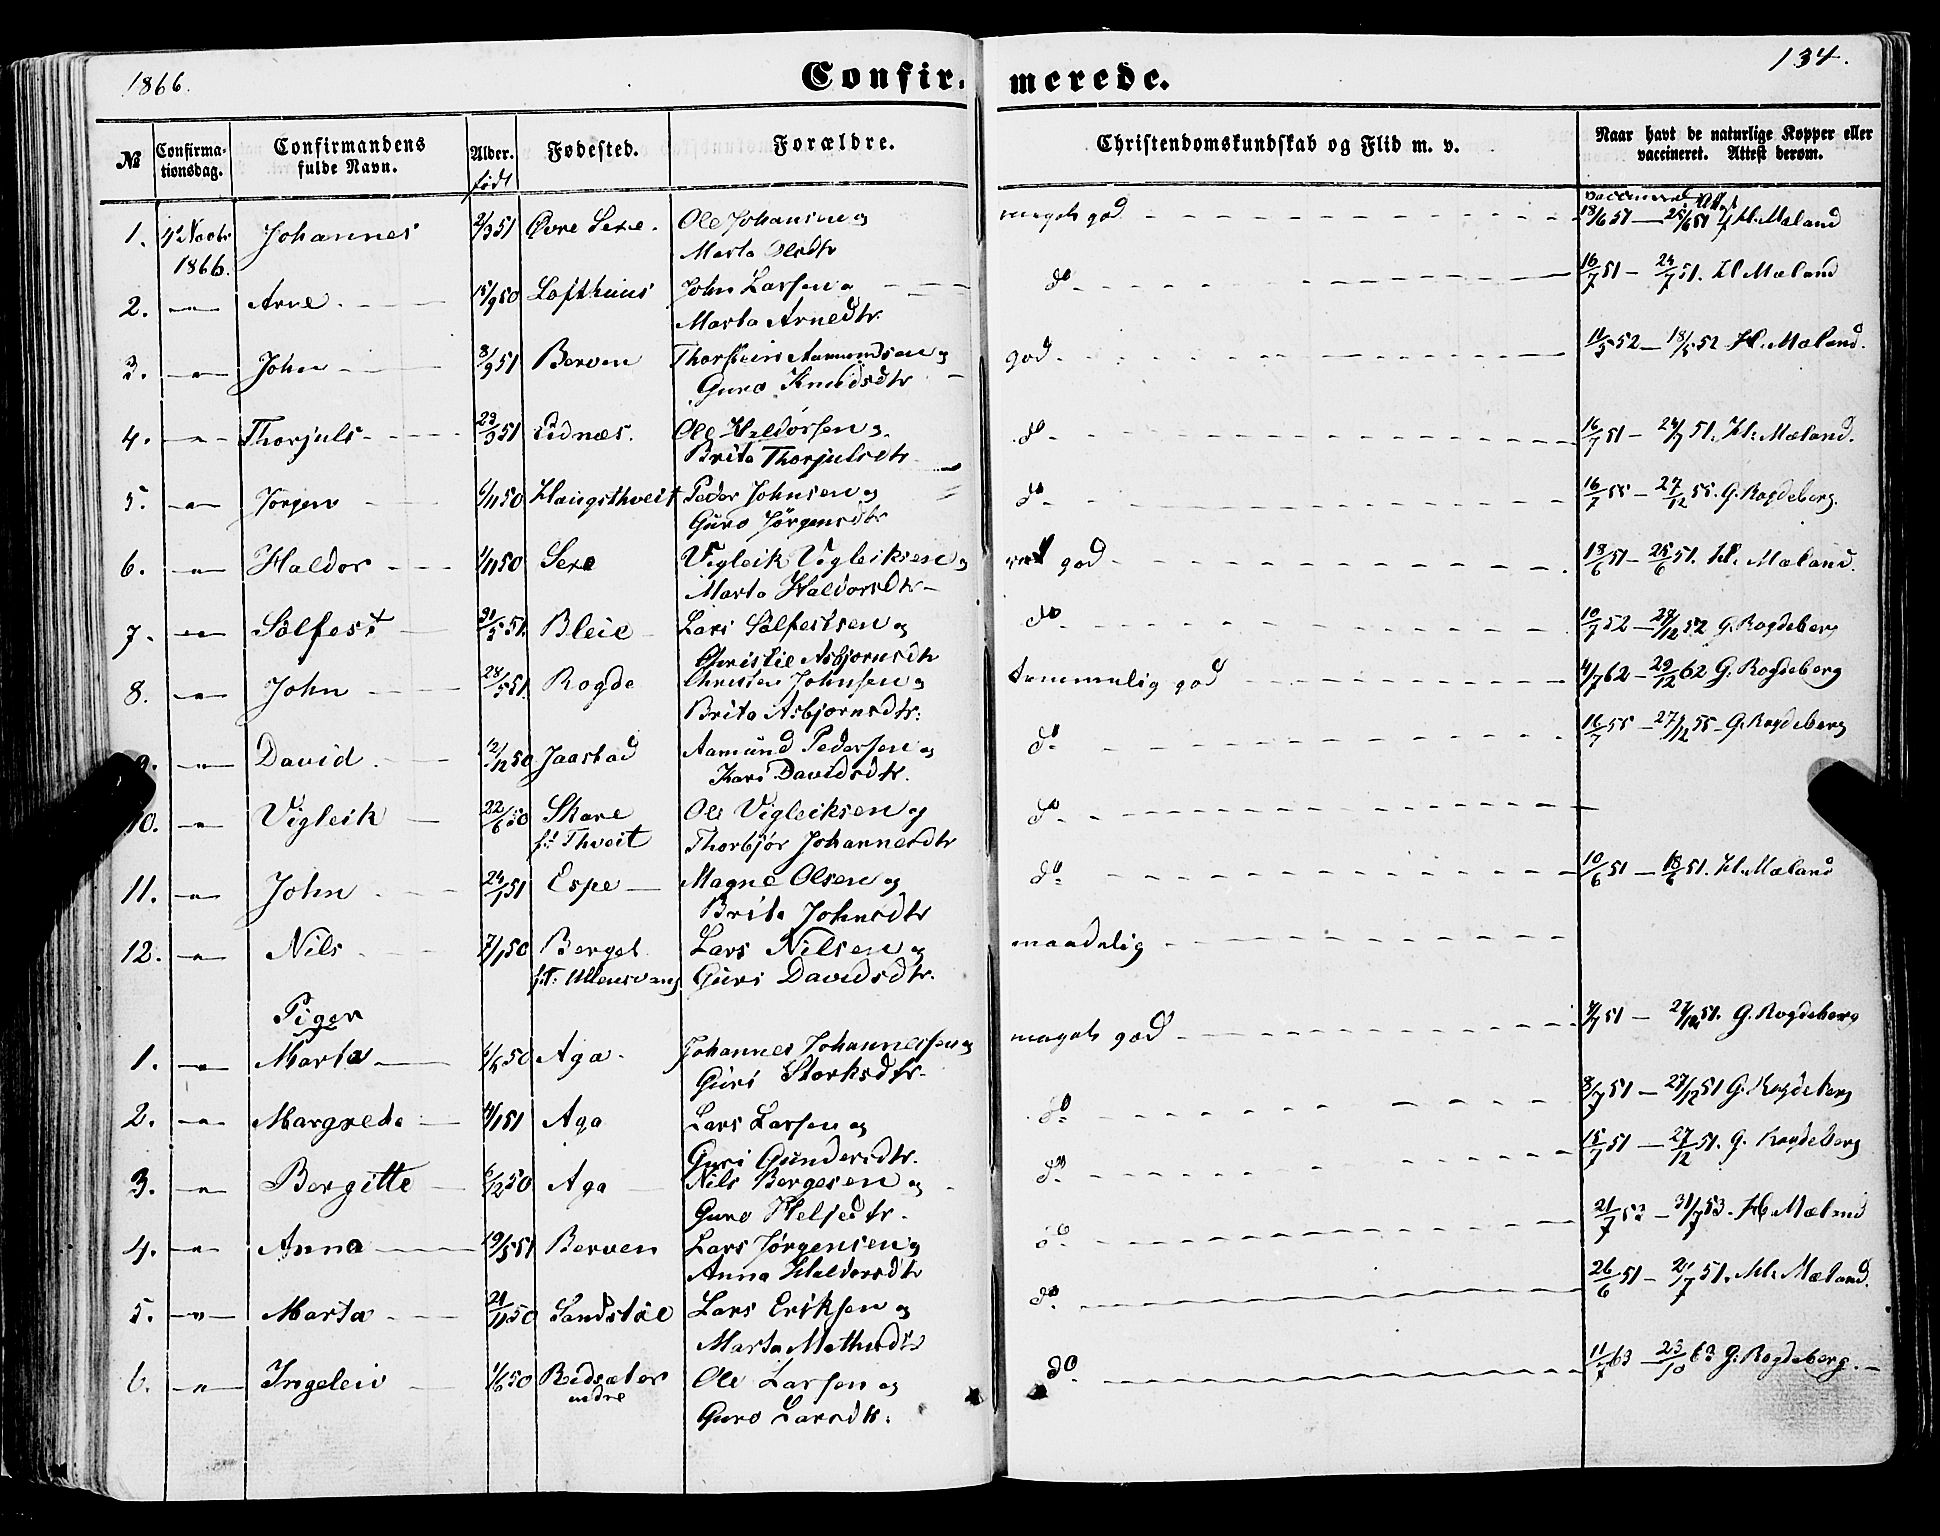 1866.
Confirmerede.
134.
№ Confirmationsdag. Confirmandens fulde Navn. Alder. født Fødested. Forældre. Christendomskundskab og Flid m. v. Naar havt de naturlige Kopper eller vaccineret. Attest derom.
1. 4de Novbr 1866. Johannes 2/3 51 Øvre Sexe. Ole Johansen og meget god vaccinered Attest 18/6 51 — 25/6 51 H. Mæland
Marta Olsdtr
2. —"— Arne 15/9 50 Lofthuus John Larsen og do 16/7 51 — 24/7 51. H. Mæland
Marta Arnedtr.
3. —"— John 8/9 51 Berven Thorstein Aamundsen og god 11/5 52 — 18/5 52 H. Mæland.
Guro Knudsdtr
4. —"— Thorjuls 23/3 51 Eidnæs. Ole Haldorsen og do 16/7 51 — 24/7 51. H. Mæland.
Brita Thorjulsdtr
5. —"— Jørgen 6/11 50 Haugsthveit Peder Johnsen og do 16/7 55 — 27/12 55. G. Rogdeberg.
Guro Jørgensdtr
6. —"— Haldor 1/11 50 Sexe Vigleik Vigleiksen og god 18/6 51 — 25/6 51. H. Mæland.
Marta Haldorsdtr
7. —"— Sølfest 31/5 51. Bleie Lars Sølfestsen og do 10/7 52 — 29/12 52 G. Rogdeberg
Christie Asbjørnsdtr
8. —"— John 28/5 51. Rogde Christen Johnsen og temmelig god 4/7 62 — 29/12 62 G. Rogdeberg
Brita Asbjørnsdtr.
9. —"— David 12/12 50 Jaastad Aamund Pedersen og do 16/7 55 — 27/12 55 — G. Rogdeberg
Kari Davidsdtr.
10. —"— Vigleik 22/6 50 Skare Ole Vigleiksen og do
f: Thveit Thorbjør Johannesdtr
11. —"— John 24/1 51 Espe Magne Olsen og do 10/6 51 — 18/6 51. H. Mæland
Brita Johnsdtr
12. —"— Nils 7/1 50 Berget Lars Nilsen og maadelig
f: Ullensvang Guri Davidsdtr.
Piger
1. —"— Marta 6/6 50 Aga Johannes Johannessen og meget god 9/7 51 — 27/12 51. G. Rogdeberg
Guri Storksdtr.
2. —"— Margrete 4/1 51 Aga Lars Larsen og do 8/7 51 — 27/12 51 G. Rogdeberg
Guri Gundersdtr.
3. —"— Bergitte 6/12 50 Aga Nils Bergesen og do 15/7 51 — 27/12 51. G. Rogdeberg
Guro Heljedtr.
4. —"— Anna 19/5 51 Berven Lars Jørgensen og do 21/7 53 — 31/7 53. H. Mæland
Anna Haldorsdtr
5. —"— Marta 21/11 50 Sandstøe Lars Eriksen og do 26/6 51 — 2/7 51. H. Mæland.
Marta
6. —"— Ingeleiv 1/6 50 Redsæter Ole Larsen og do 11/7 63 — 23/10 63 G. Rogdeberg.
indre Guro Larsdtr.